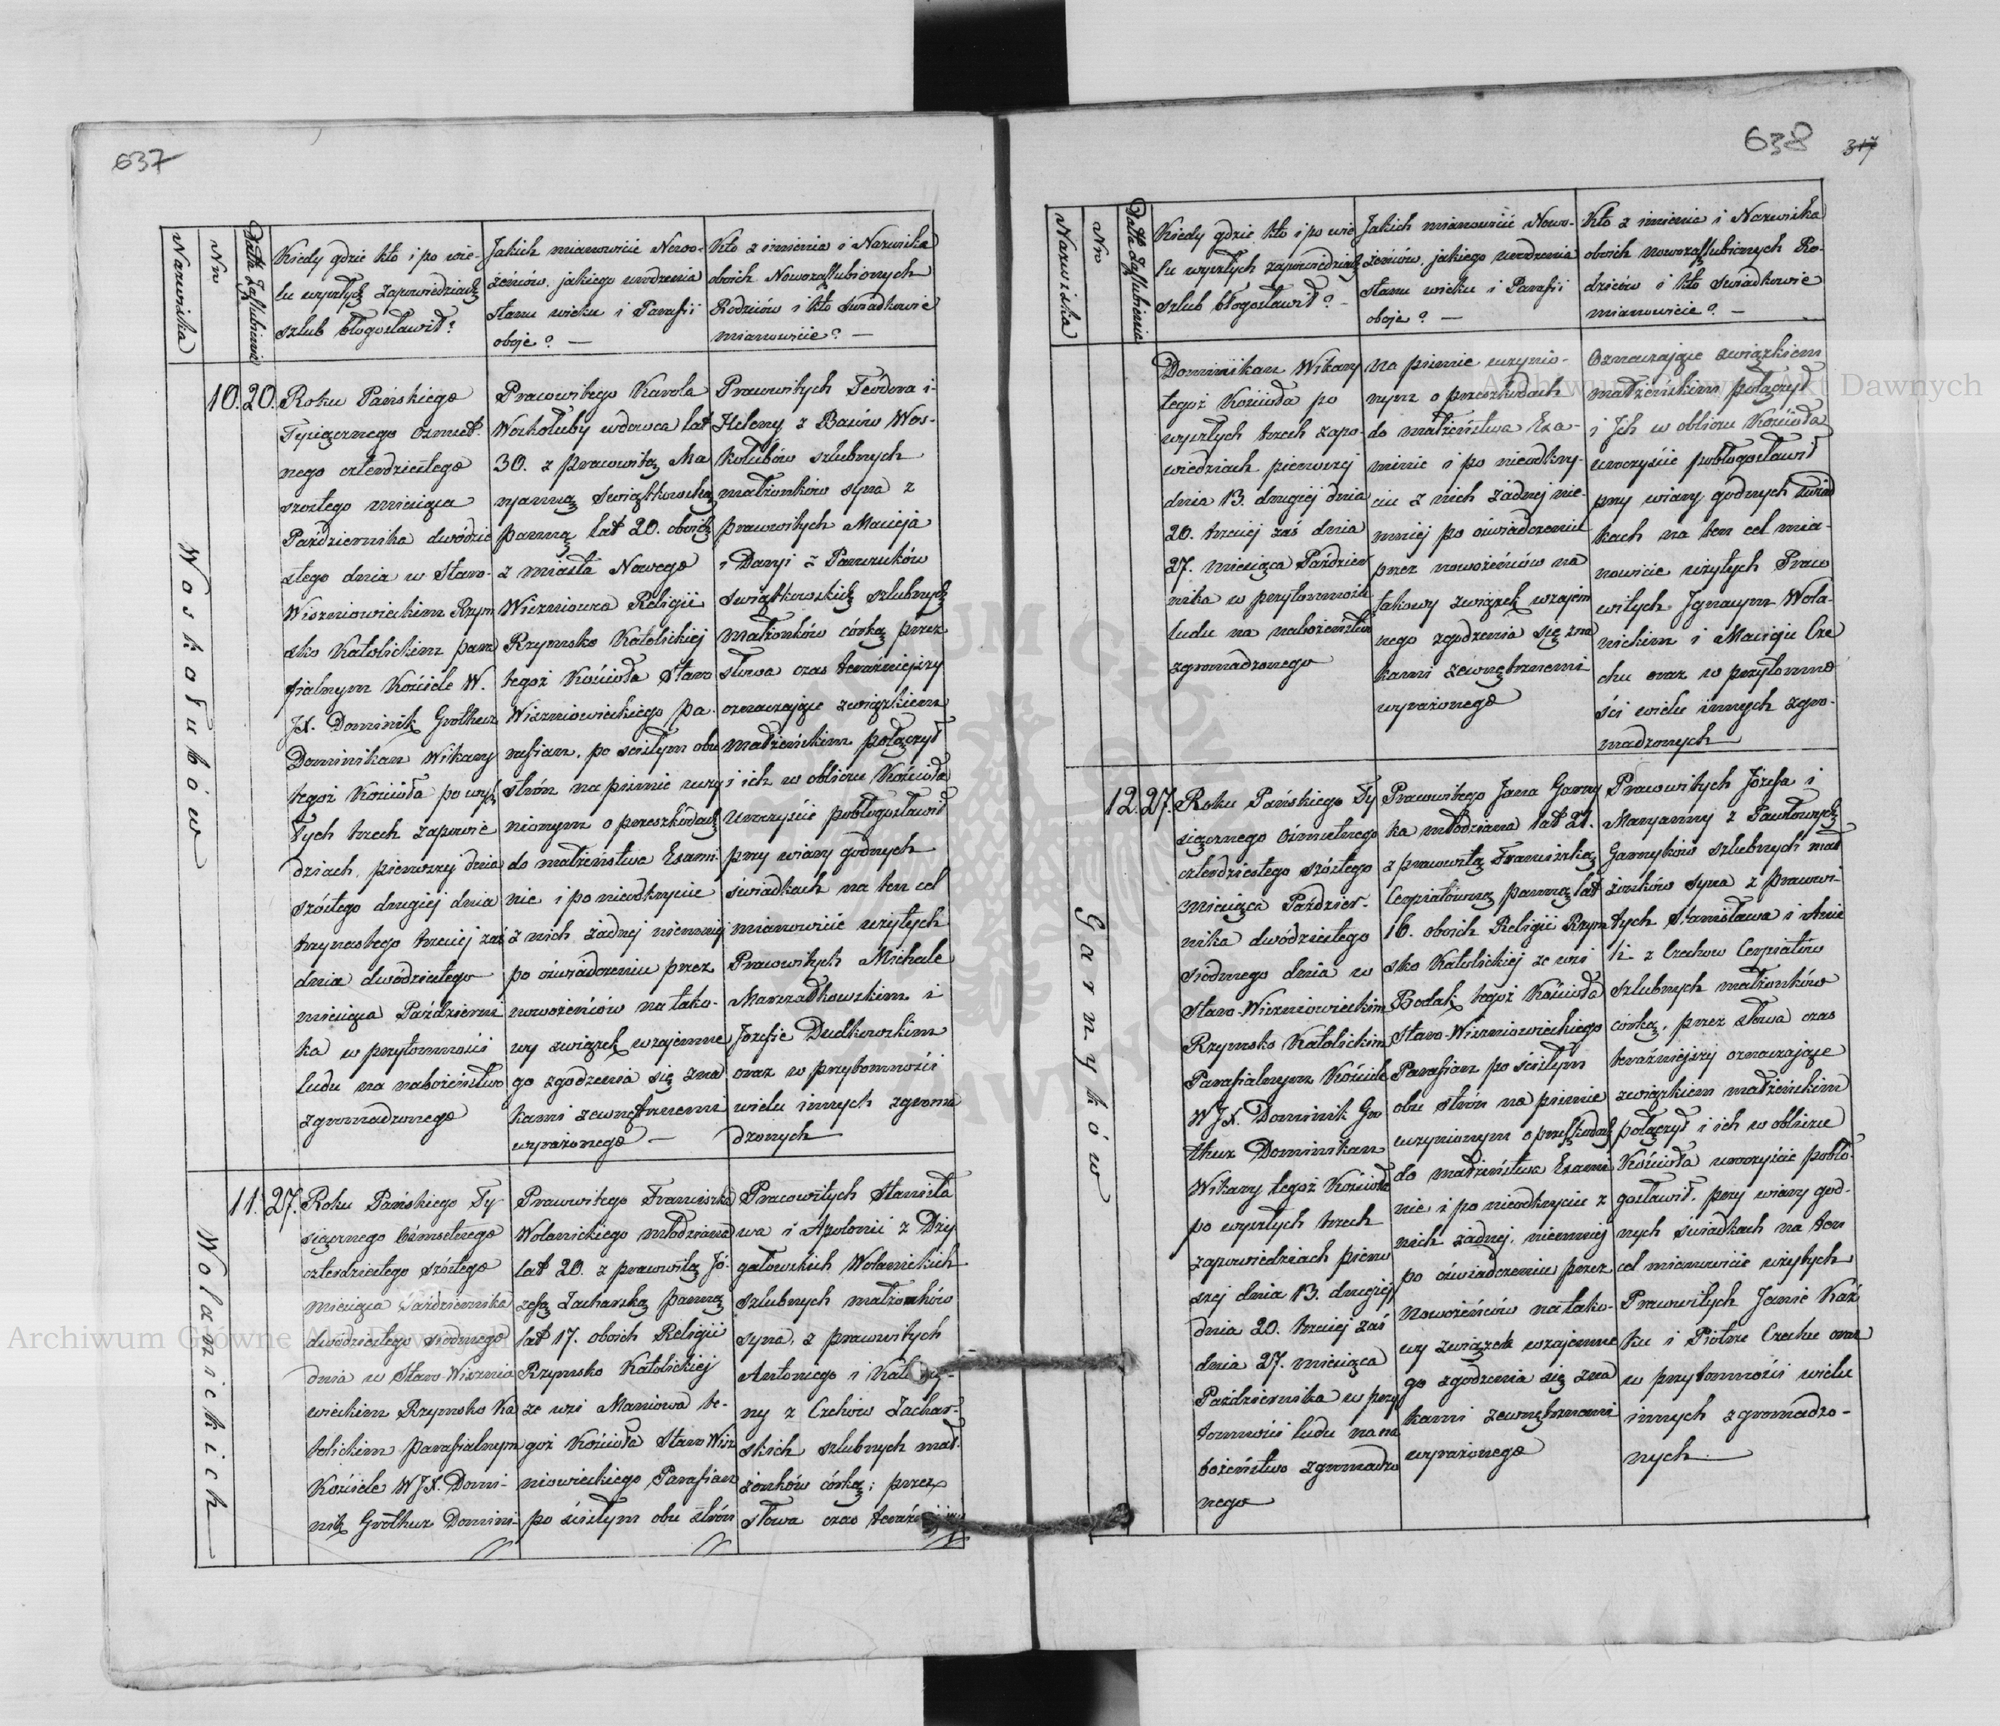 637
Nazwiska
Nro
Datta Zaslubienia
Kiedy gdzie kto i po wie-
lu wyszłych zapowiedziach
szlub błogosławił?
Jakich mianowicie Nowo-
żeńców, jakiego urodzenia
stanu wieku i Parafii
oboje? —
Kto z imienia i Nazwiska
oboich Nowozaszlubionych
Rodziców i kto swiadkowie
mianowicie? —
Woskołubów
10.
20.
Roku Pańskiego
Tysiącznego osmset-
nego czterdziestego
szostego miesiąca
Października dwódzie
stego dnia w Staro-
Wiszniowieckim Rzym
sko Katolickim para
fialnym Kościele W.
JX. Dominik Grothuz
Dominikan Wikary
tegoż Kościoła po wysz
łych trzech zapowie
dziach, pierwszej dnia
szóstego drugiej dnia
trzynastego trzeciej zaś
dnia dwódziestego
miesiąca Październi
ka w przytomności
ludu na nabożeństwo
zgromadzonego
Pracowitego Karola
Woskołuby wdowca lat
30. z pracowitą Ma
ryanną Swiątkowską
panną lat 20. oboich
z miasta Nowego
Wiszniowca Religii
Rzymsko Katolickiej
tegoż Kościoła Staro
Wiszniowieckiego Pa-
rafian, po scisłym obu
strón na pismie uczy
nionym o przeszkodach
do małżeństwa Exami-
nie i po nieodkryciu
z nich żadnej niemniej
po oświadczeniu przez
nowożeńców na tako-
wy związek wzajemne
go zgodzenia się zna
kami zewnętrznemi
wyrażonego —
Pracowitych Teodora i
Heleny z Baiów Wos-
kołubów szlubnych
małżonków syna z
pracowitych Macieja
i Daryi z Panasiuków
Swiątkowskich szlubnych
małżonków córką przez
słowa czas teraźniejszy
oznaczające związkiem
małżeńskim połączył
i ich w obliczu Kościoła
Uroczyście pobłogosławił
przy wiary godnych
świadkach na ten cel
mianowicie użytych
Pracowitych Michale
Marszadkowskim i
Józefie Dudkowskim
oraz w przytomności
wielu innych zgroma
dzonych
Wolanickich
11.
27.
Roku Pańskiego Ty
siącznego Ósmsetnego
czterdziestego szóstego
miesiąca Października
dwódziestego siódmego
dnia w Staro-Wisznio
wieckim Rzymsko Ka
tolickim parafialnym
Kościele W JX. Domi-
nik Grothuz Domini-
Pracowitego Franciszka
Wolanickiego młodziana
lat 20. z pracowitą Jó-
zefą Zacharską panną
lat 17. oboich Religii
Rzymsko Katolickiej
ze wsi Maniowa te-
goż Kościoła Staro Wisz
niowieckiego Parafian
po scisłym obu strón
Pracowitych Stanisła
wa i Apolonii z Dzy
gałowskich Wolanickich
szlubnych małżonków
syna, z pracowitych
Antoniego i Katarzy-
ny z Czchów Zachar-
skich szlubnych mał-
żonków córką; przez
słowa czas teraźniejszy
638
317
Nazwiska
Nro
Datta Zaslubienia
Kiedy gdzie kto i po wie
lu wyszłych zapowiedziach
szlub błogosławił? —
Jakich mianowicie Nowo-
żeńców, jakiego urodzenia
stanu wieku i Parafii
oboje? —
Kto z imienia i Nazwiska
oboich nowozaszlubionych Ro-
dziców i kto swiadkowie
mianowicie? —
Dominikan Wikary
tegoż Kościoła po
wyszłych trzech zapo-
wiedziach pierwszej
dnia 13. drugiej dnia
20. trzeciej zaś dnia
27. miesiąca Paździer
nika w przytomności
ludu na nabożeństwo
zgromadzonego
na pismie uczynio-
nym o przeszkodach
do małżeństwa Exa-
minie i po nieodkry-
ciu z nich żadnej nie-
mniej po oświadczeniu
przez nowożeńców na
takowy związek wzajem
nego zgodzenia się zna
kami zewnętrznemi
wyrażonego
Oznaczające związkiem
małżeńskim połączył
i Jch w obliczu Kościoła
uroczyście pobłogosławił
przy wiary godnych świad
kach na ten cel mia-
nowicie użytych Praco
witych Jgnacym Wola-
nickim i Macieju Cze
chu oraz w przytomno
ści wielu innych zgro-
madzonych
Garnyków
12.
27.
Roku Pańskiego Ty
siącznego Ośmsetnego
czterdziestego szóstego
miesiąca Paździer-
nika dwódziestego
siódmego dnia w
Staro-Wiszniowieckim
Rzymsko Katolickim
Parafialnym Kościele
W JX. Dominik Gro
thuz Dominikan
Wikary tegoż Kościoła
po wyszłych trzech
zapowiedziach pierw
szej dnia 13. drugiej
dnia 20. trzeciej zaś
dnia 27. miesiąca
Października w przy
tomności ludu na na
bożeństwo zgromadzo
nego
Pracowitego Jana Garny
ka młodziana lat 21.
z pracowitą Franciszką
Cerpiałowną panną lat
16. oboich Religii Rzym
sko Katolickiej ze wsi
Bodak tegoż Kościoła
Staro-Wiszniowieckiego
Parafian po ścisłym
obu strón na pismie
uczynionym o przeszkodach
do małżeństwa Exami
nie i po nieodkryciu z
nich żadnej, niemniej
po oświadczeniu przez
Nowożeńców na tako-
wy związek wzajemne
go zgodzenia się zna
kami zewnętrznemi
wyrażonego
Pracowitych Józefa i
Maryanny z Pawłowych
Garnyków szlubnych mał
żonków syna z Pracowi-
tych Stanisława i Anie
li z Czechow Cerpiałów
szlubnych małżonków
córką, przez słowa czas
teraźniejszy oznaczające
związkiem małżeńskim
połączył i ich w obliczu
Kościoła uroczyście pobło-
gosławił, przy wiary god-
nych świadkach na ten
cel mianowicie użytych
Pracowitych Janie Każ
ku i Piotrze Czechu oraz
w przytomności wielu
innych zgromadzo-
nych
Archiwum Główne Akt Dawnych
Archiwum Główne Akt Dawnych